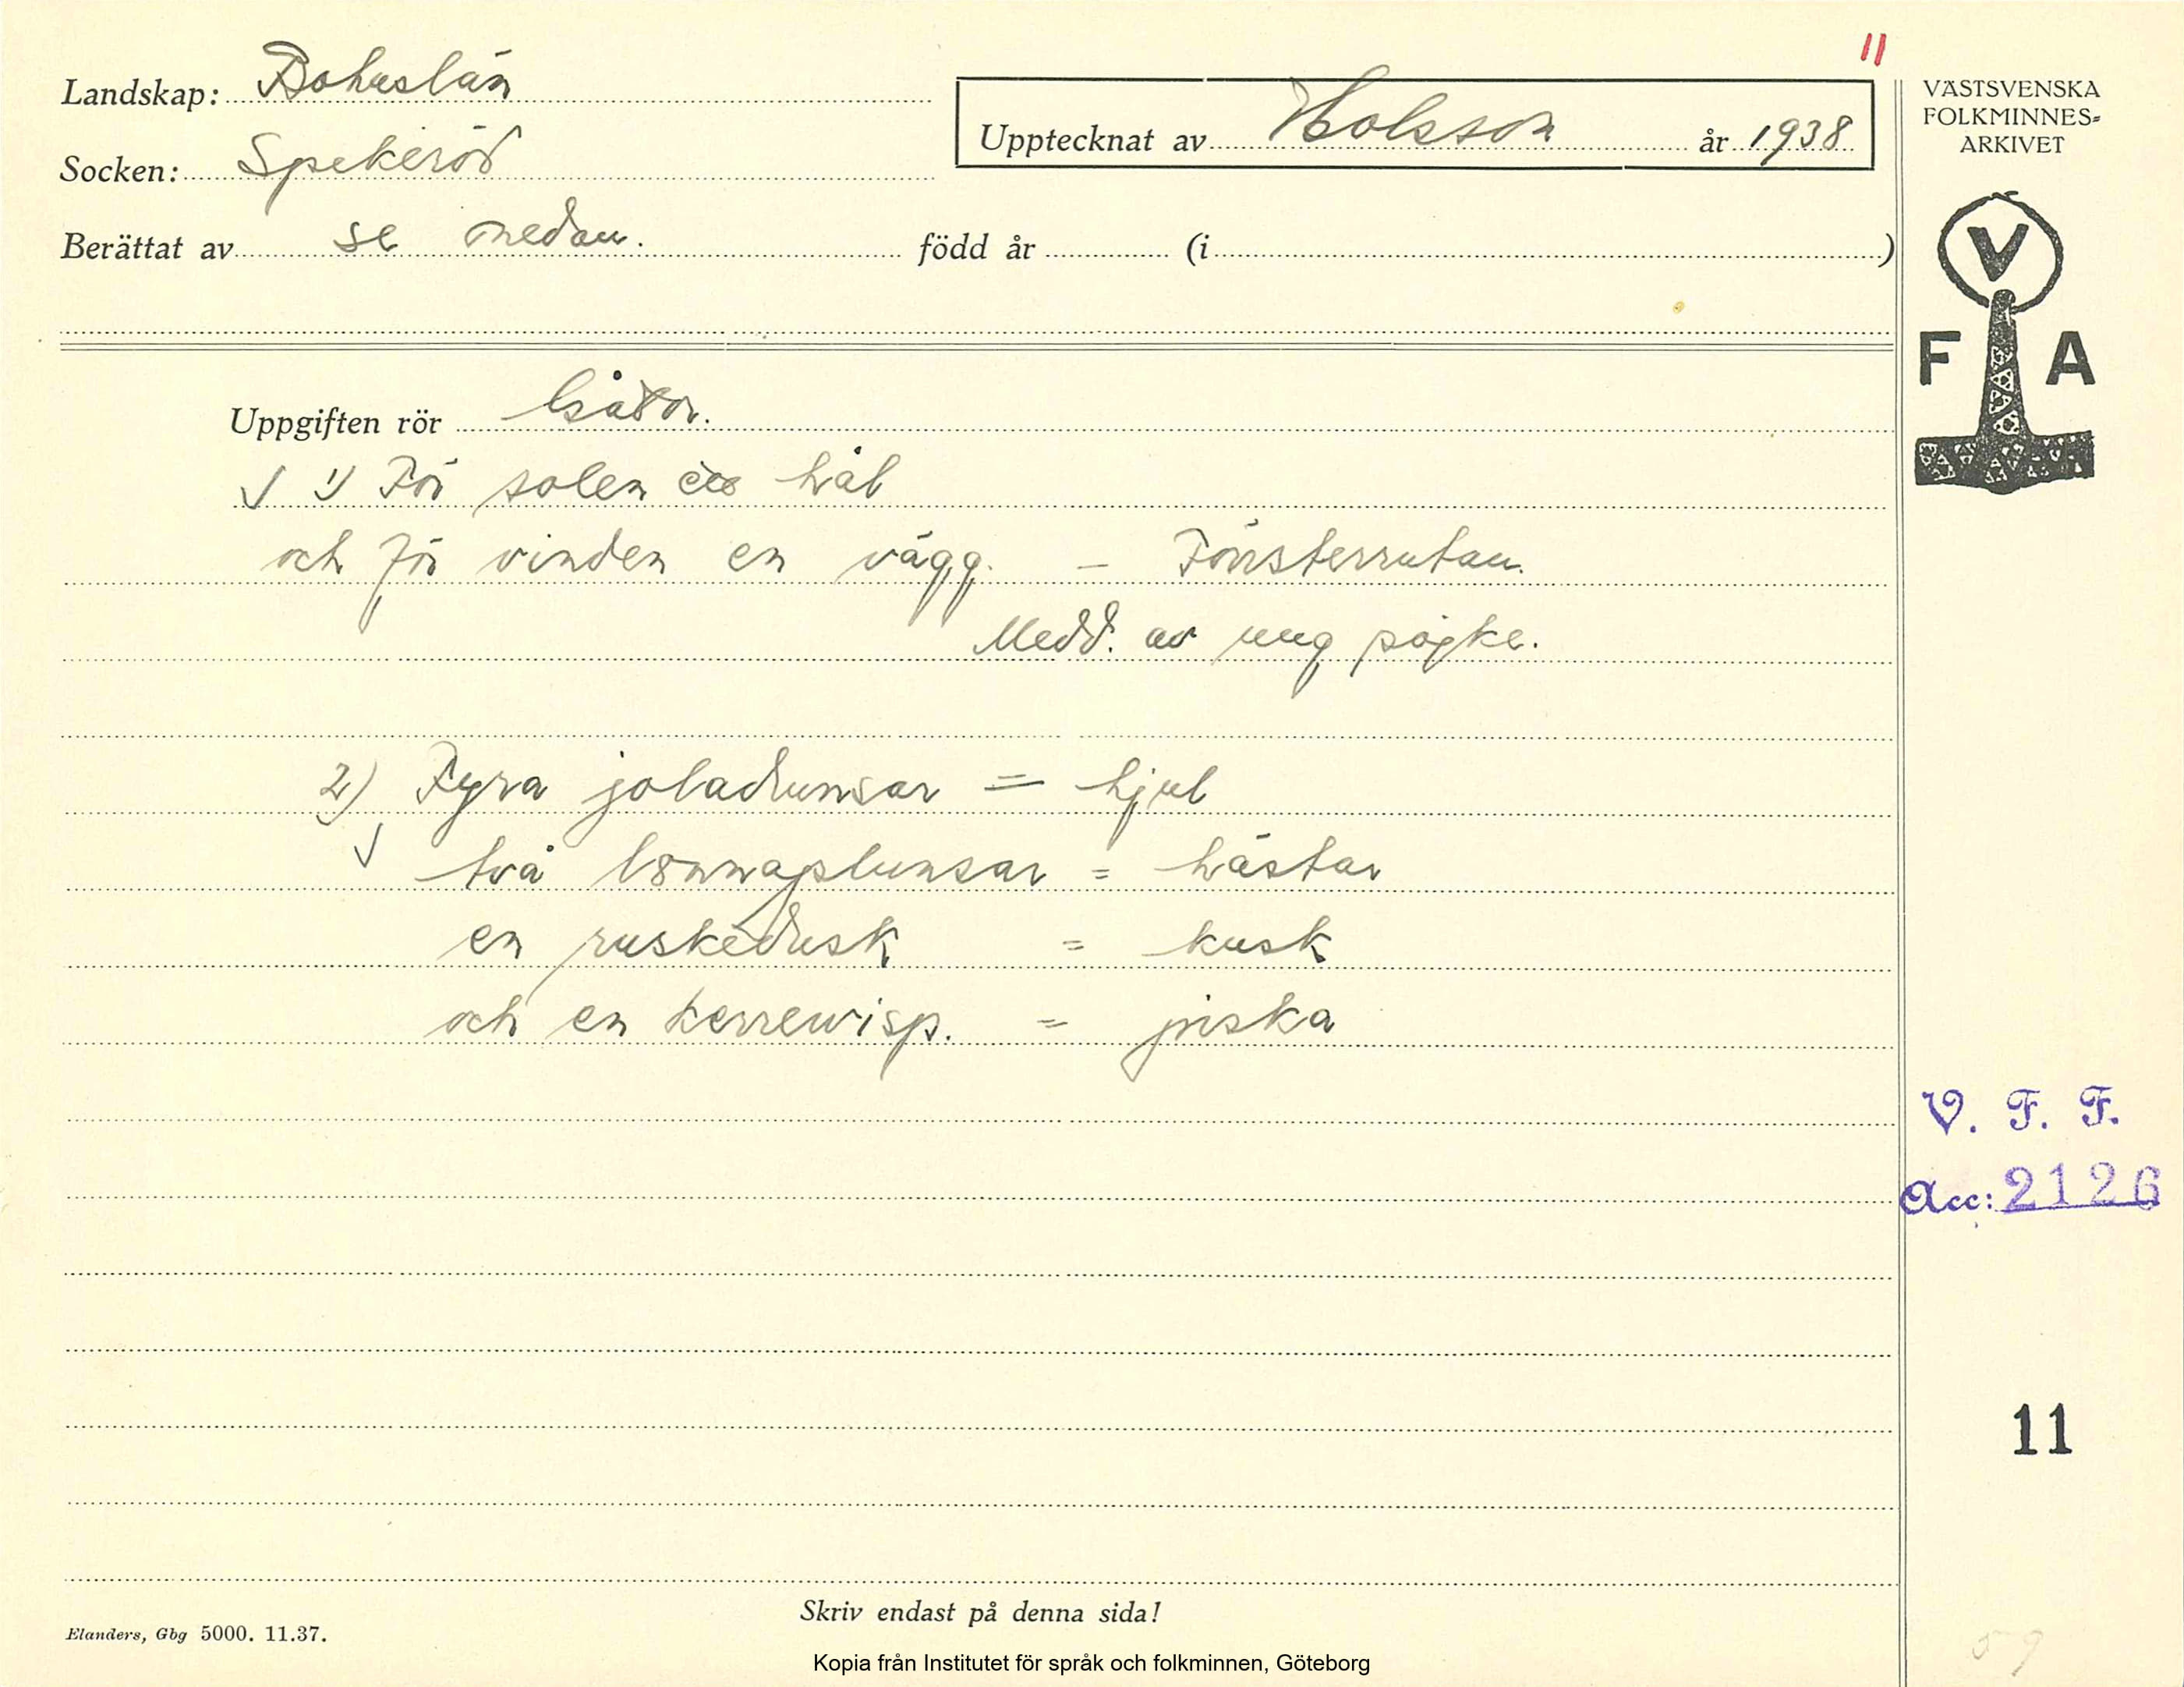 11
Landskap: Bohuslän
VÄSTSVENSKA
FOLKMINNES=
ARKIVET
Upptecknat av Holsson år 1938
Socken: Spekeröd
Berättat av se nedan. född år (i )
V
F A
Uppgiften rör Gåtor.
√ 1) För solen ett hål
och för vinden en vägg. – Fönsterrutan.
Medd. av ung pojke.
2) Fyra joladunsar = hjul
√ två lönnaplunsar = hästar
en ruskedusk = kusk
och en kerrewisp. = piska
V. F. F.
Acc: 2126
11
Skriv endast på denna sida!
Elanders, Gbg 5000. 11.37.
59
Kopia från Institutet för språk och folkminnen, Göteborg